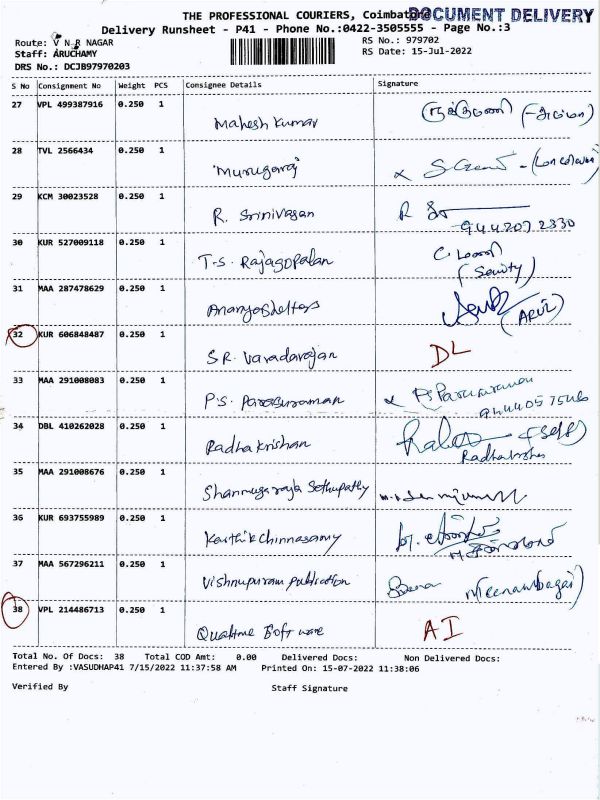 THE PROFESSIONAL COURIERS, Coimbatore
DOCUMENT DELIVERY
Delivery Runsheet - P41 - Phone No.:0422-3505555 - Page No.:3
Route: V N R NAGAR
RS No.: 979702
Staff: ARUCHAMY
RS Date: 15-Jul-2022
DRS No.: DCJB97970203
S No Consignment No Weight PCS Consignee Details Signature
27 VPL 499387916 0.250 1
Mahesh Kumar
28 TVL 2566434 0.250 1
Murugaraj
29 KCM 30023528 0.250 1
R. Srinivasan R
944207 2330
30 KUR 527009118 0.250 1
T.S. Rajagopalan
31 MAA 287478629 0.250 1
Ananya Shelters (ARUL)
32 KUR 606848487 0.250 1
S.R. Varadarajan DL
33 MAA 291008083 0.250 1
P.S. Parasuraman
34 DBL 410262028 0.250 1
Radhakrishan
35 MAA 291008676 0.250 1
Shanmuga raja Sethupathy
36 KUR 693755989 0.250 1
Karthik Chinnasamy
37 MAA 567296211 0.250 1
Vishnupuram publication
38 VPL 214486713 0.250 1
Software AI
Total No. Of Docs: 38 Total COD Amt: 0.00 Delivered Docs: Non Delivered Docs:
Entered By :VASUDHAP41 7/15/2022 11:37:58 AM Printed On: 15-07-2022 11:38:06
Verified By Staff Signature